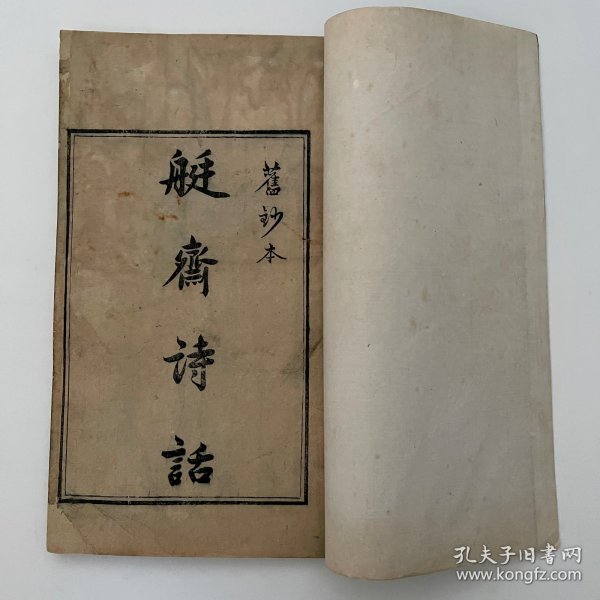 舊鈔本
艇齋詩話
孔夫子旧书网
www.kongfz.com